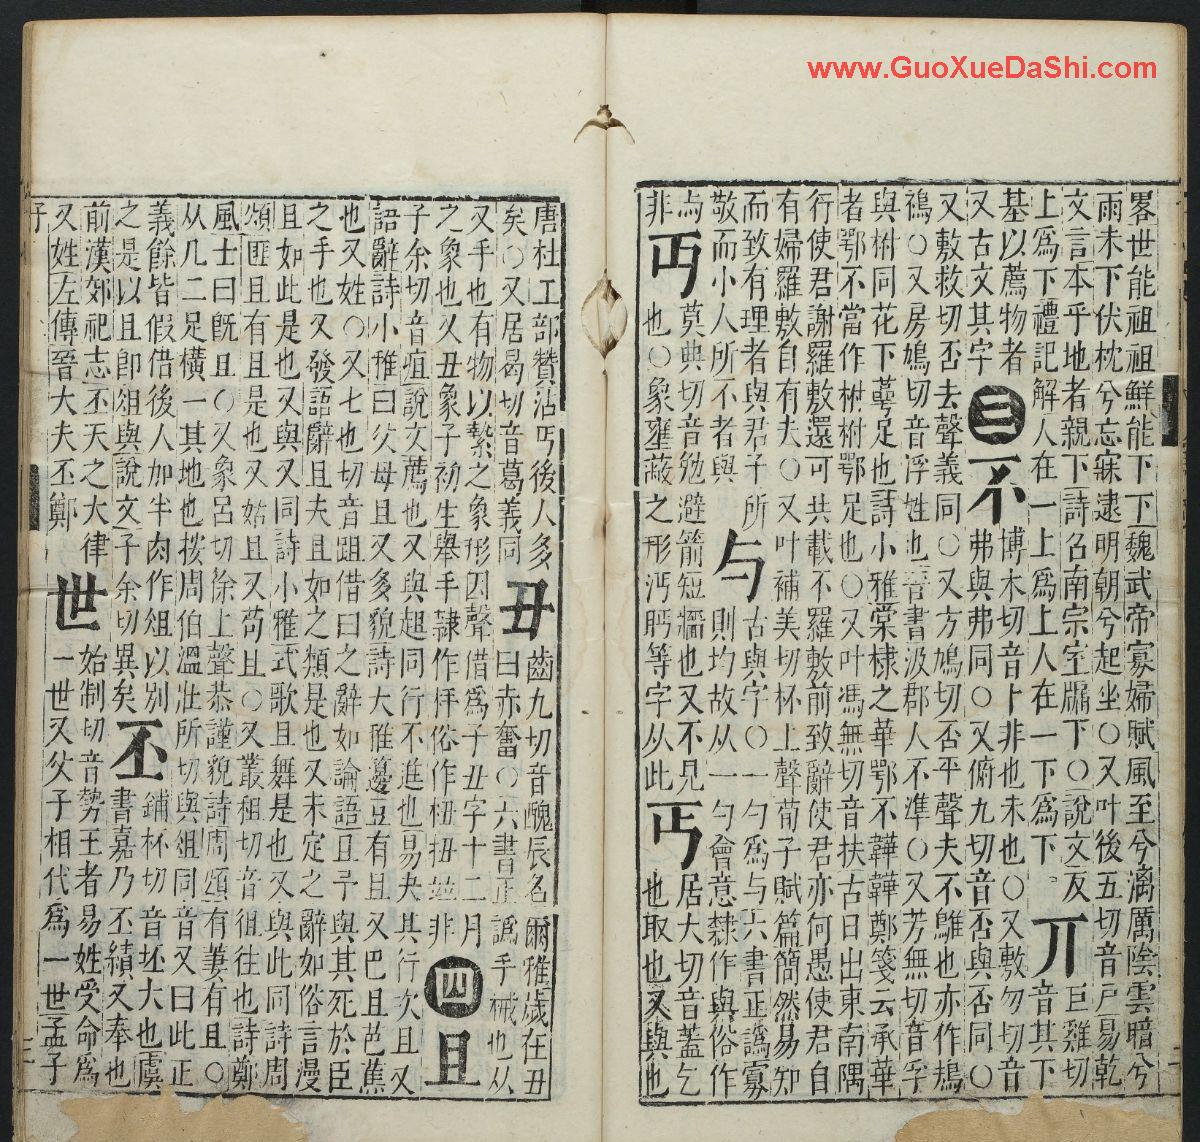 www.GuoXueDaShi.com
畧世能祖鮮能下下魏武帝寡婦賦風至兮漓厲陰雲暗兮
雨未下伏枕兮忘寐逮明朝兮起坐○又叶後五切音戸易乾
文言本乎地者親下詩召南宗室牖下○說文反
上爲下禮記解人在一上爲上人在一下爲下 丌 巨雞切音其下
基以薦物者
又古文其字 三 不 博木切音卜非也未也○又敷勿切音
弗與弗同○又俯九切音否與否同○
又敷救切否去聲義同○又方鳩切否平聲夫不鵻也亦作鳺
鴀○又房鳩切音浮姓也晉書汲郡人不準○又芳無切音孚
與柎同花下萼足也詩小雅棠棣之華鄂不韡韡鄭箋云承華
者鄂不當作柎柎鄂足也○又叶馮無切音扶古日出東南隅
行使君謝羅敷還可共載不羅敷前致辭使君亦何愚使君自
有婦羅敷自有夫○又叶補美切杯上聲荀子賦篇簡然易知
而致有理者與君子所
敬而小人所不者與 与 古與字○一勺爲与六書正譌寡
則均故从一勺會意隸作與俗作
与非 丏 莫典切音勉避箭短墻也又不見
也○象壅蔽之形沔眄等字从此 丐 居大切音蓋乞
也取也又與也
唐杜工部贊沾丐後人多
矣○又居曷切音葛義同 丑 齒九切音醜辰名爾雅歲在丑
曰赤奮○六書正譌手械也从
又手也有物以縶之象形因聲借爲子丑字十二月
之象也又丑象子初生舉手隸作杽俗作杻扭竝非 四 且
子余切音疽說文薦也又與趄同行不進也易夬其行次且又
語辭詩小雅曰父母且又多貌詩大雅籩豆有且又巴且芭蕉
也又姓○又七也切音跙借曰之辭如論語且予與其死於臣
之手也又發語辭且夫且如之類是也又未定之辭如俗言漫
且如此是也又與又同詩小雅式歌且舞是也又與此同詩周
頌匪且有且是也又姑且又苟且○又叢租切音徂往也詩鄭
風士曰旣且○又象呂切徐上聲恭謹貌詩周頌有萋有且○
从几二足橫一其地也按周伯溫壯所切與俎同音又曰此正
義餘皆假借後人加半肉作俎以別
之是以且卽俎與說文子余切異矣 丕 鋪杯切音坯大也虞
書嘉乃丕績又奉也
前漢郊祀志丕天之大律
又姓左傳晉大夫丕鄭 世 始制切音勢王者易姓受命爲
一世又父子相代爲一世孟子